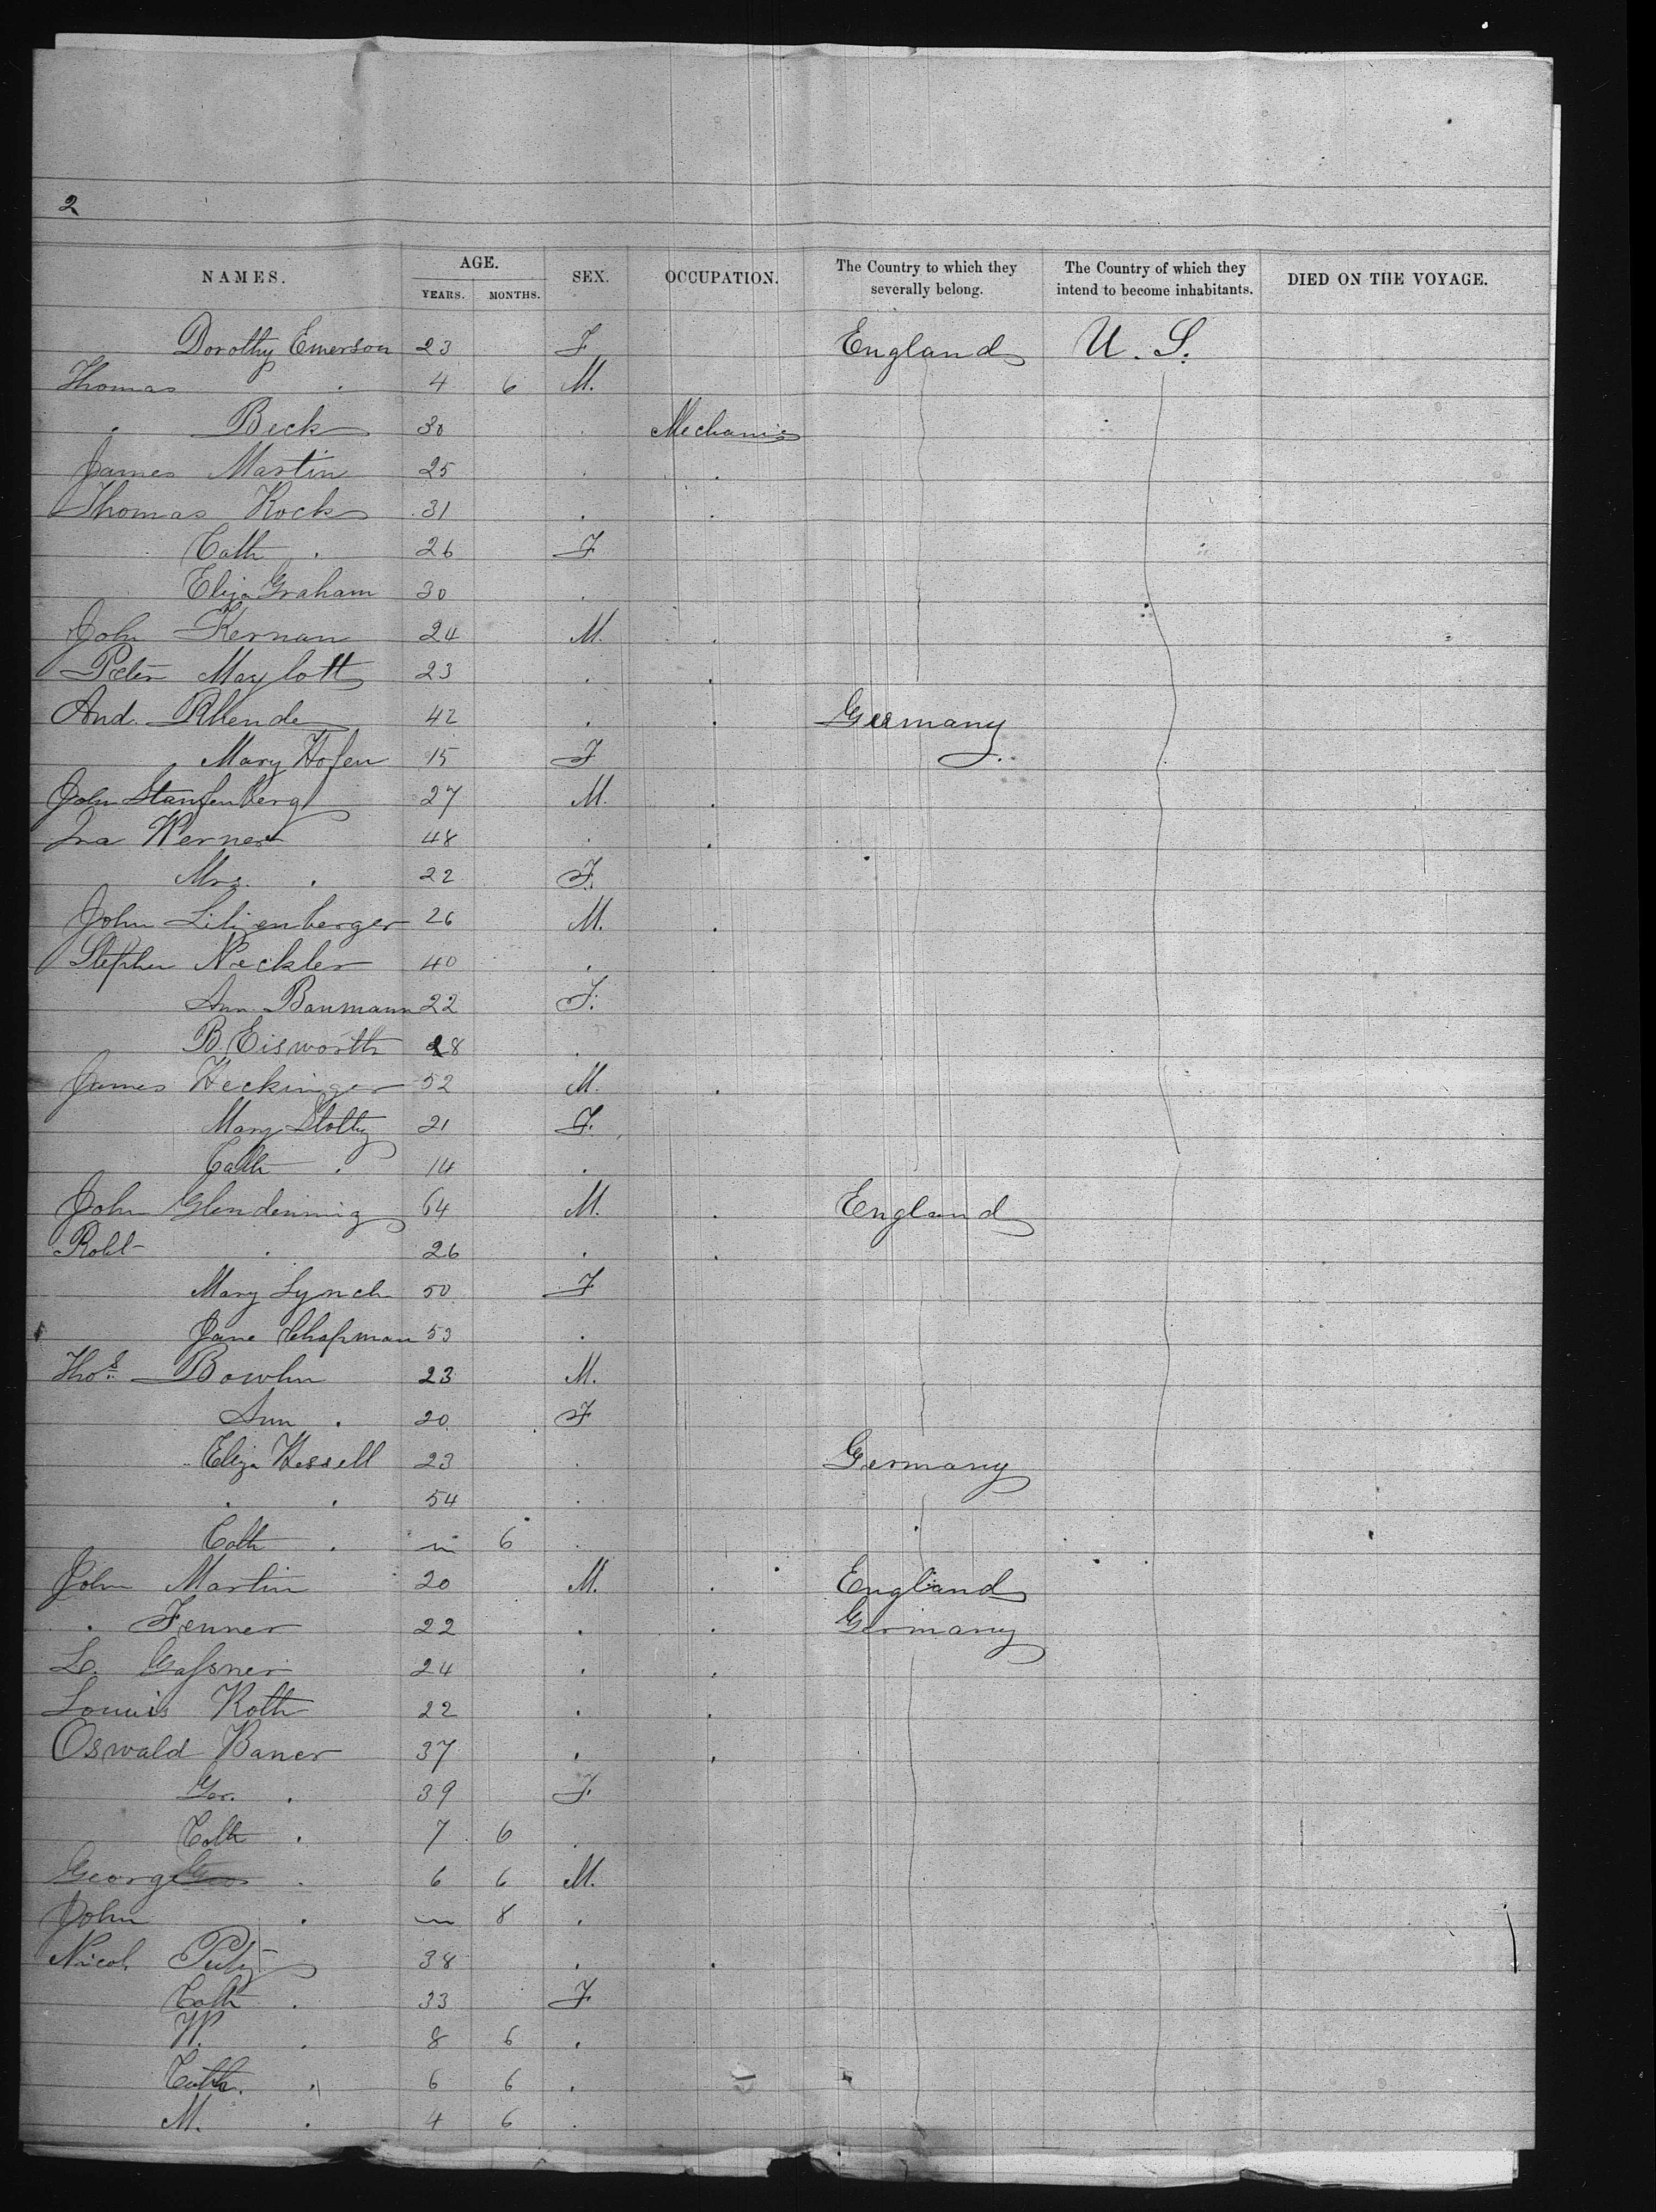 2
NAMES. AGE. SEX. OCCUPATION. The Country to which they severally belong. The Country of which they intend to become inhabitants. DIED ON THE VOYAGE.
YEARS. MONTHS.
Dorothy Emerson 23 F England U. S.
Thomas . 4 6 M.
. Beck 30 . Mechanic
James Martin 25 . .
Thomas Rock 31 . .
Cath . 26 F
Eliza Graham 30 .
John Kernan 24 M. .
Peter Maylott 23 . .
And. Rhende 42 . . Germany
Mary Hofen 15 F
John Stanfenberg 27 M. .
Ira Werner 48 . .
Mrs. . 22 F.
John Lilienberger 26 M. .
Stephen Neckler 40 . .
Ann Baumann 22 F.
B. Eisworth 28 .
James Heckinger 52 M. .
Mary Slotty 21 F.
Cath . 14 .
John Glendenning 64 M. . England
Robt . 26 . .
Mary Lynch 50 F
Jane Chapman 53 .
Thos. Bowlin 23 M.
Ann . 20 F
Eliza Hessell 23 . Germany
. . 54 .
Cath . 6 .
John Martin 20 M. . England
. Fenner 22 . . Germany
L. Gassner 24 . .
Louis Roth 22 . .
Oswald Baner 37 . .
Ger. . 39 F
Cath . 7 6 .
George . 6 6 M.
John . 8 .
Nicol. 38 . .
Cath . 33 F
W. . 8 6 .
Cath. . 6 6 .
M. . 4 6 .